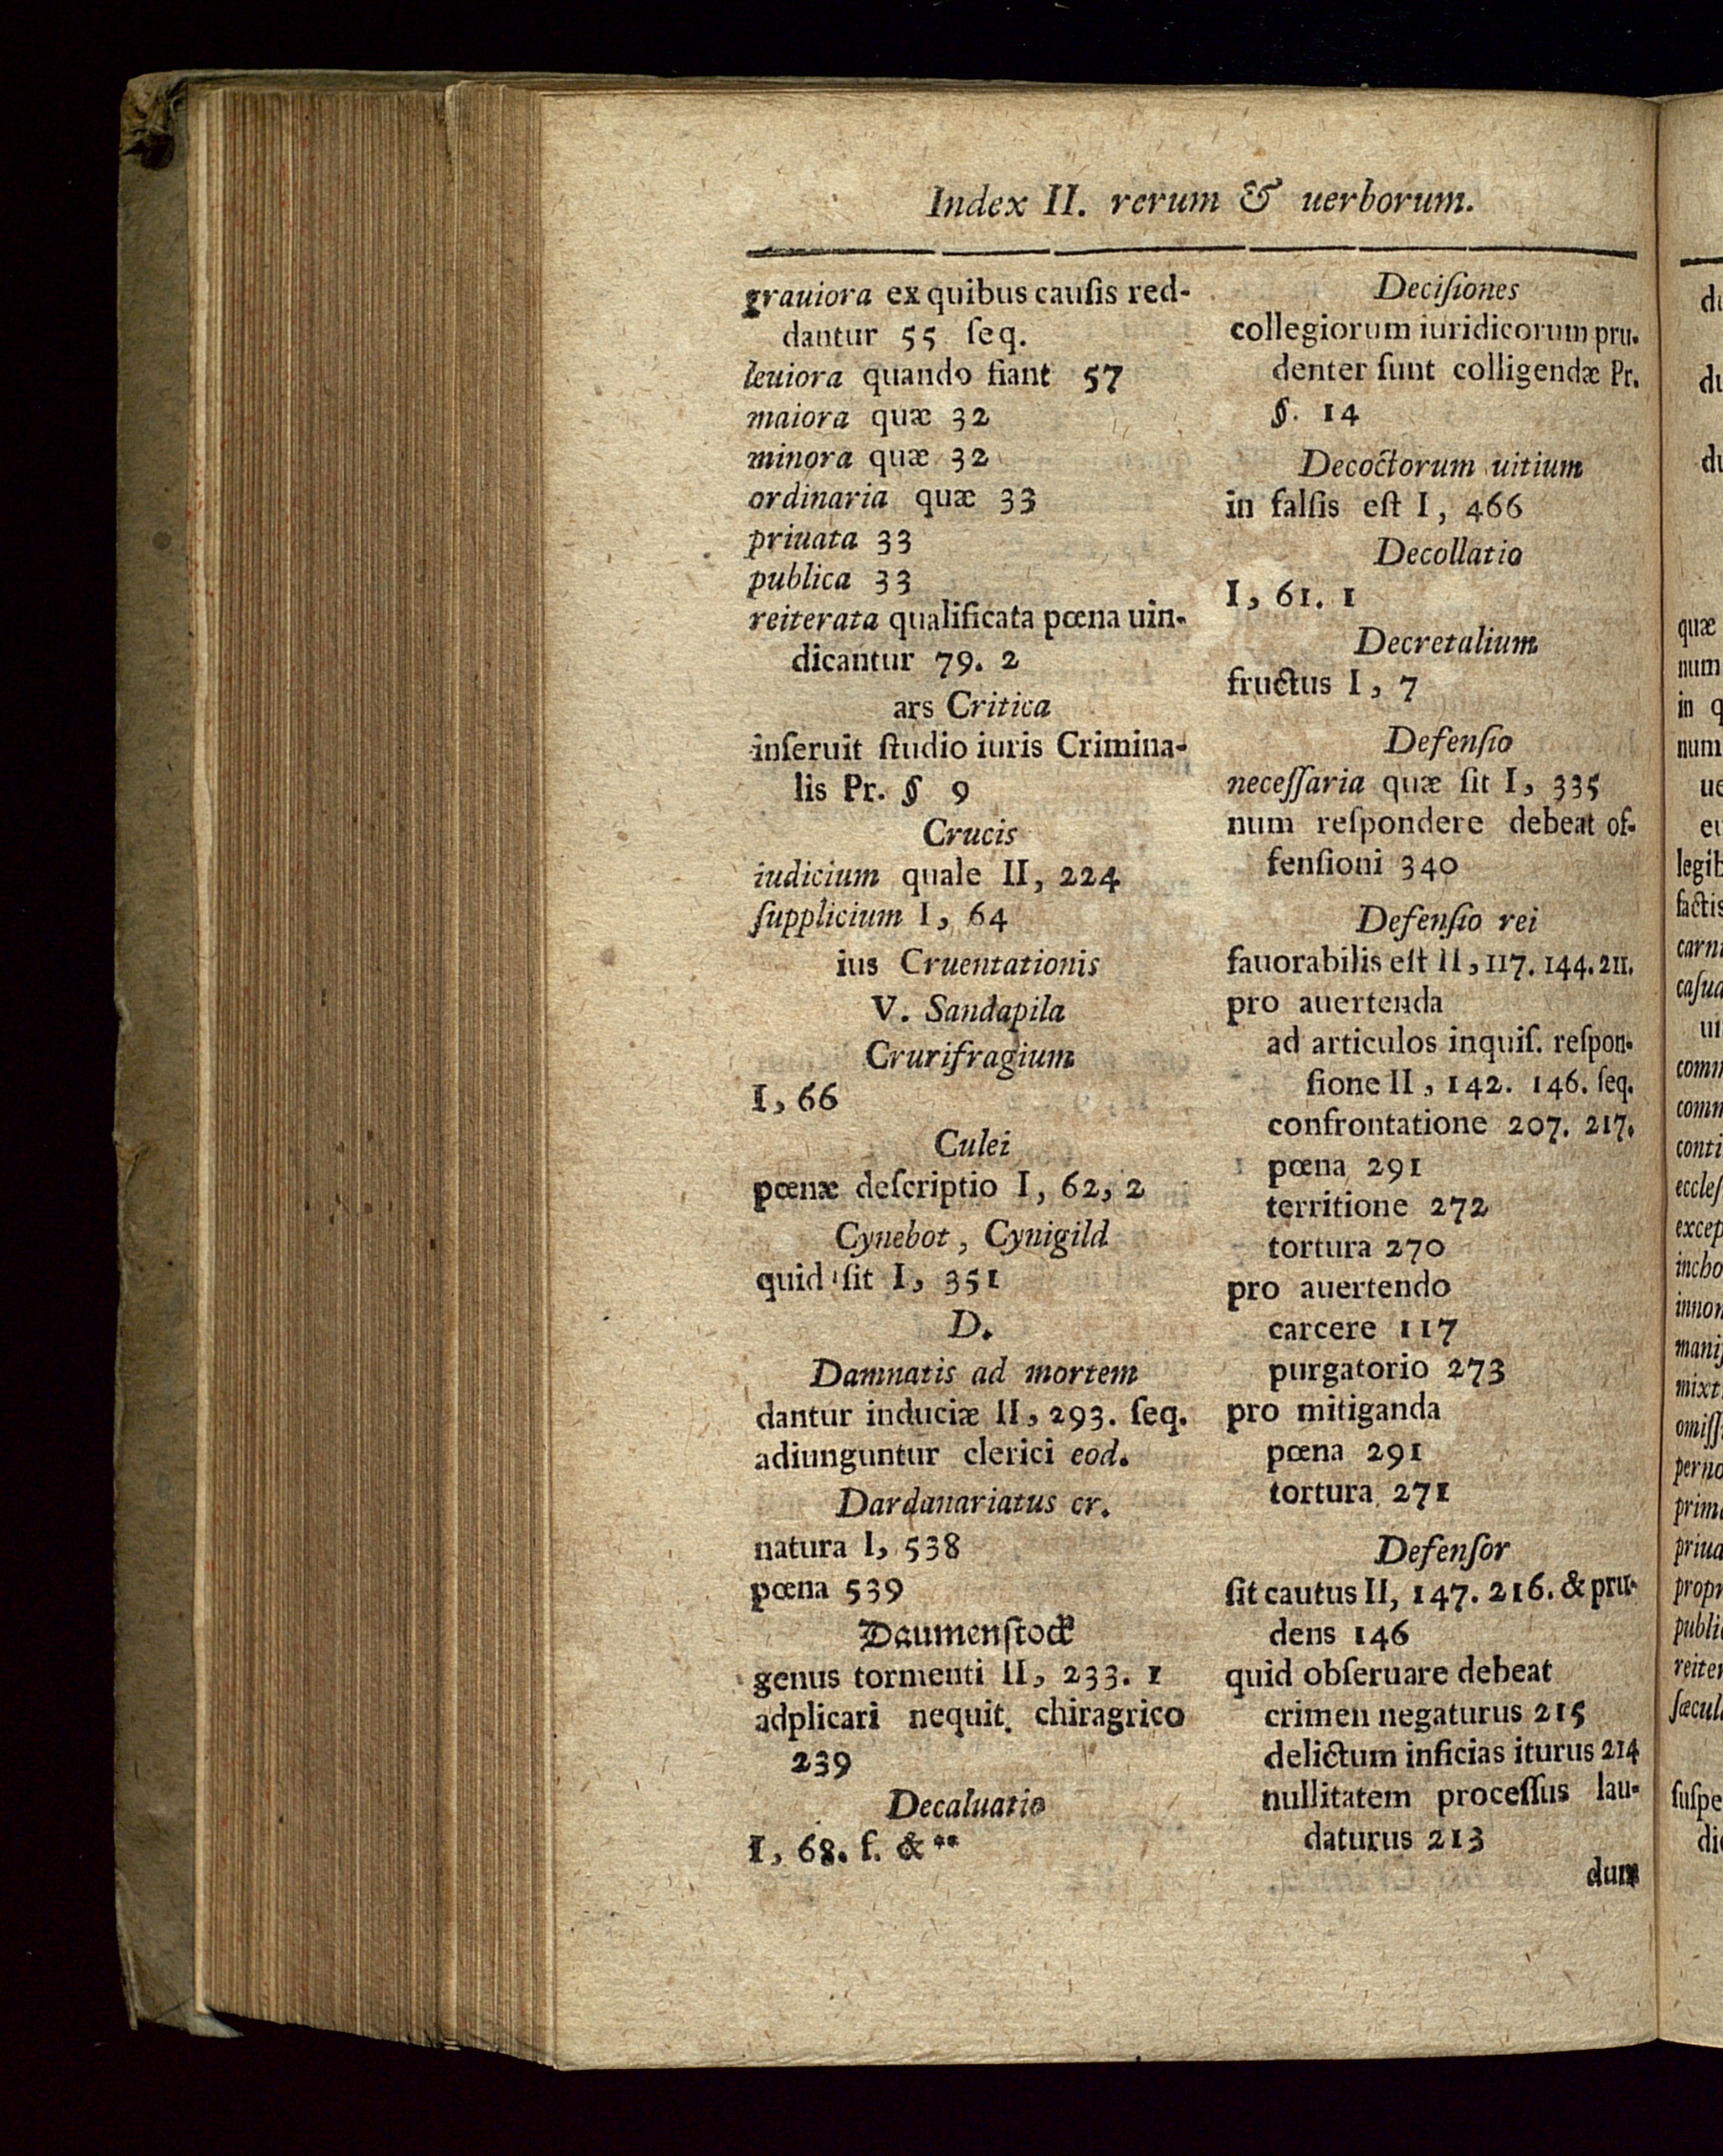 Index II. rerum & uerborum.
grauiora ex quibus cauſis red-
dantur 55 ſeq.
leuiora quando fiant 57
maiora quæ 32
minora quæ 32
ordinaria quæ 33
priuata 33
publica 33
reiterata qualificata pœna uin-
dicantur 79. 2
ars Critica
inſeruit ſtudio iuris Crimina-
lis Pr. § 9
Crucis
iudicium quale II, 224
ſupplicium I, 64
ius Cruentationis
V. Sandapila
Crurifragium
I, 66
Culei
pœnæ deſcriptio I, 62, 2
Cynebot, Cynigild
quid ſit I, 351
D.
Damnatis ad mortem
dantur induciæ II, 293. ſeq.
adiunguntur clerici eod.
Dardanariatus cr.
natura I, 538
pœna 539
Daumenſtock
genus tormenti II, 233. 1
adplicari nequit chiragrico
239
Decaluatio
I, 68. ſ. & **
Deciſiones
collegiorum iuridicorum pru-
denter ſunt colligendæ Pr.
§. 14
Decoctorum uitium
in falſis eſt I, 466
Decollatio
I, 61. 1
Decretalium
fructus I, 7
Defenſio
neceſſaria quæ ſit I, 335
num reſpondere debeat of-
fenſioni 340
Defenſio rei
fauorabilis eſt II, 117. 144. 211.
pro auertenda
ad articulos inquiſ. reſpon-
ſione II, 142. 146. ſeq.
confrontatione 207. 217.
pœna 291
territione 272
tortura 270
pro auertendo
carcere 117
purgatorio 273
pro mitiganda
pœna 291
tortura 271
Defenſor
ſit cautus II, 147. 216. & pru-
dens 146
quid obſeruare debeat
crimen negaturus 215
delictum inficias iturus 214
nullitatem proceſſus lau-
daturus 213
dum
quæ
num
in
num